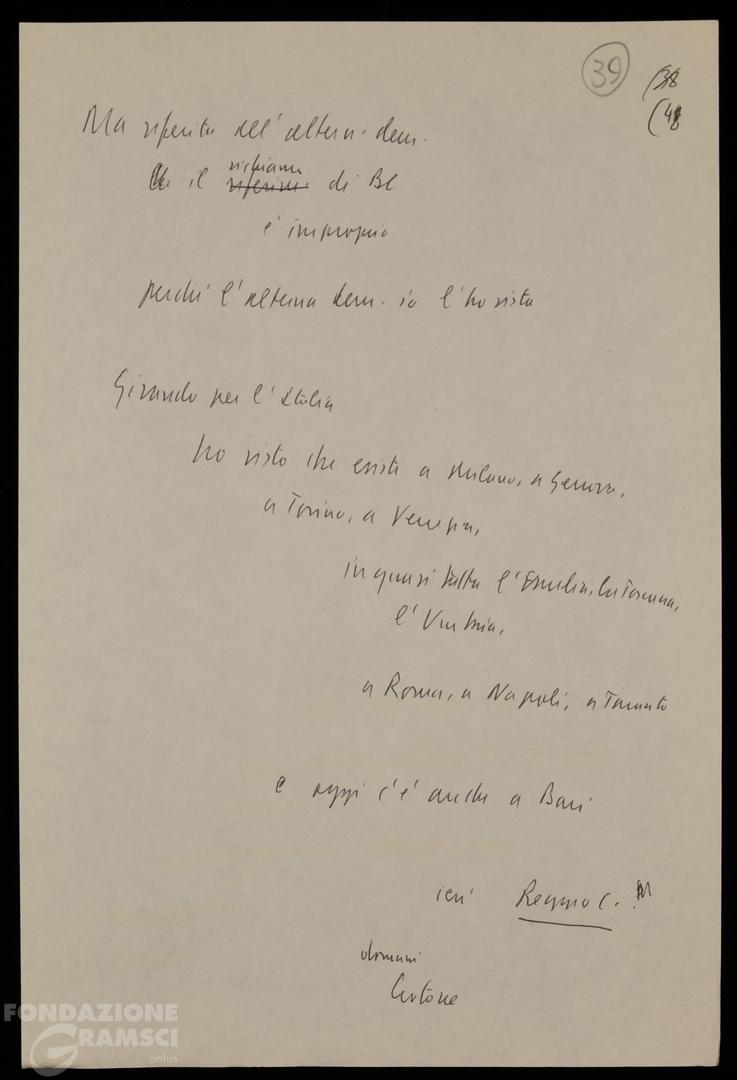 39
(38
(48
Ma riferita all'altern. dem.
il richiamo
riferim. di Bl
è improprio
perché l'alterna dem. io l'ho vista
Girando per l'Italia
ho visto che esiste a Milano, a Genova,
a Torino, a Venezia,
in quasi tutta l'Emilia, la Toscana,
l'Umbria,
a Roma, a Napoli, a Taranto
e oggi c'è anche a Bari
ieri Reggio C.
domani
Crotone
FONDAZIONE
GRAMSCI
onlus